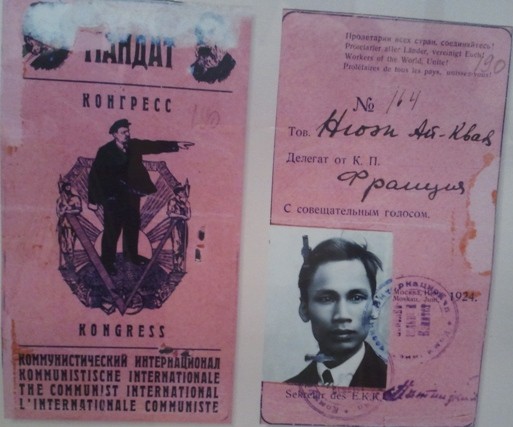 МАНДАТ
КОНГРЕСС
KONGRESS
КОММУНИСТИЧЕСКИЙ ИНТЕРНАЦИОНАЛ
KOMMUNISTISCHE INTERNATIONALE
THE COMMUNIST INTERNATIONAL
L'INTERNATIONALE COMMUNISTE
Пролетарии всех стран, соединяйтесь!
Proletarier aller Länder, vereinigt Euch!
Workers of the World, Unite!
Prolétaires de tous les pays, unissez-vous!
190
№ 164
Тов. Нгюэн Ай-Квак
Делегат от К. П.
Франция
С совещательным голосом.
1924.
Sekretär des E.K.K.I.